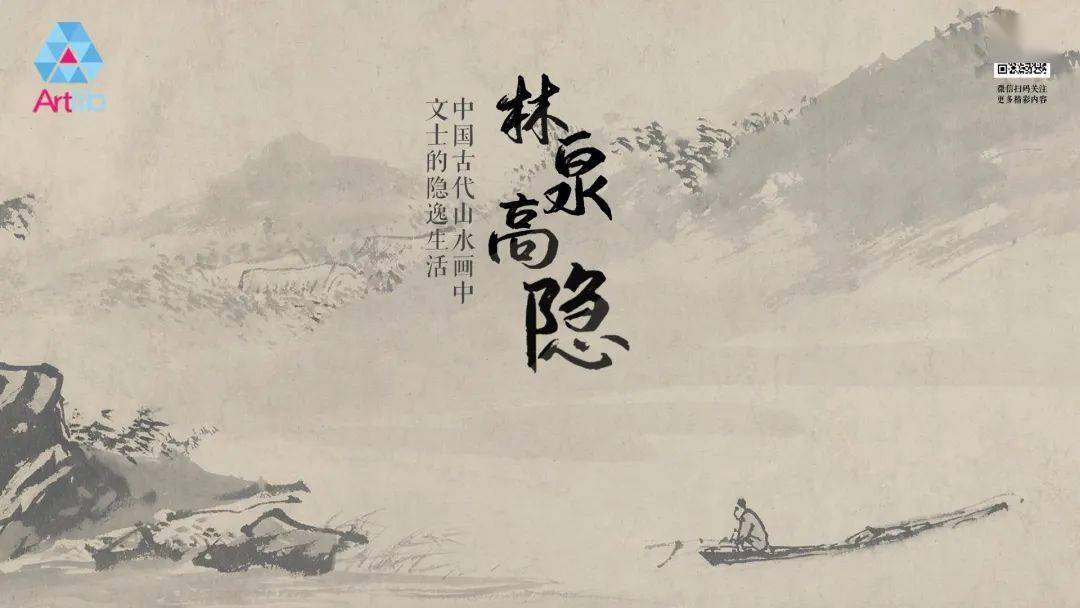 林泉高隐
中国古代山水画中
文士的隐逸生活
微信扫码关注
更多精彩内容